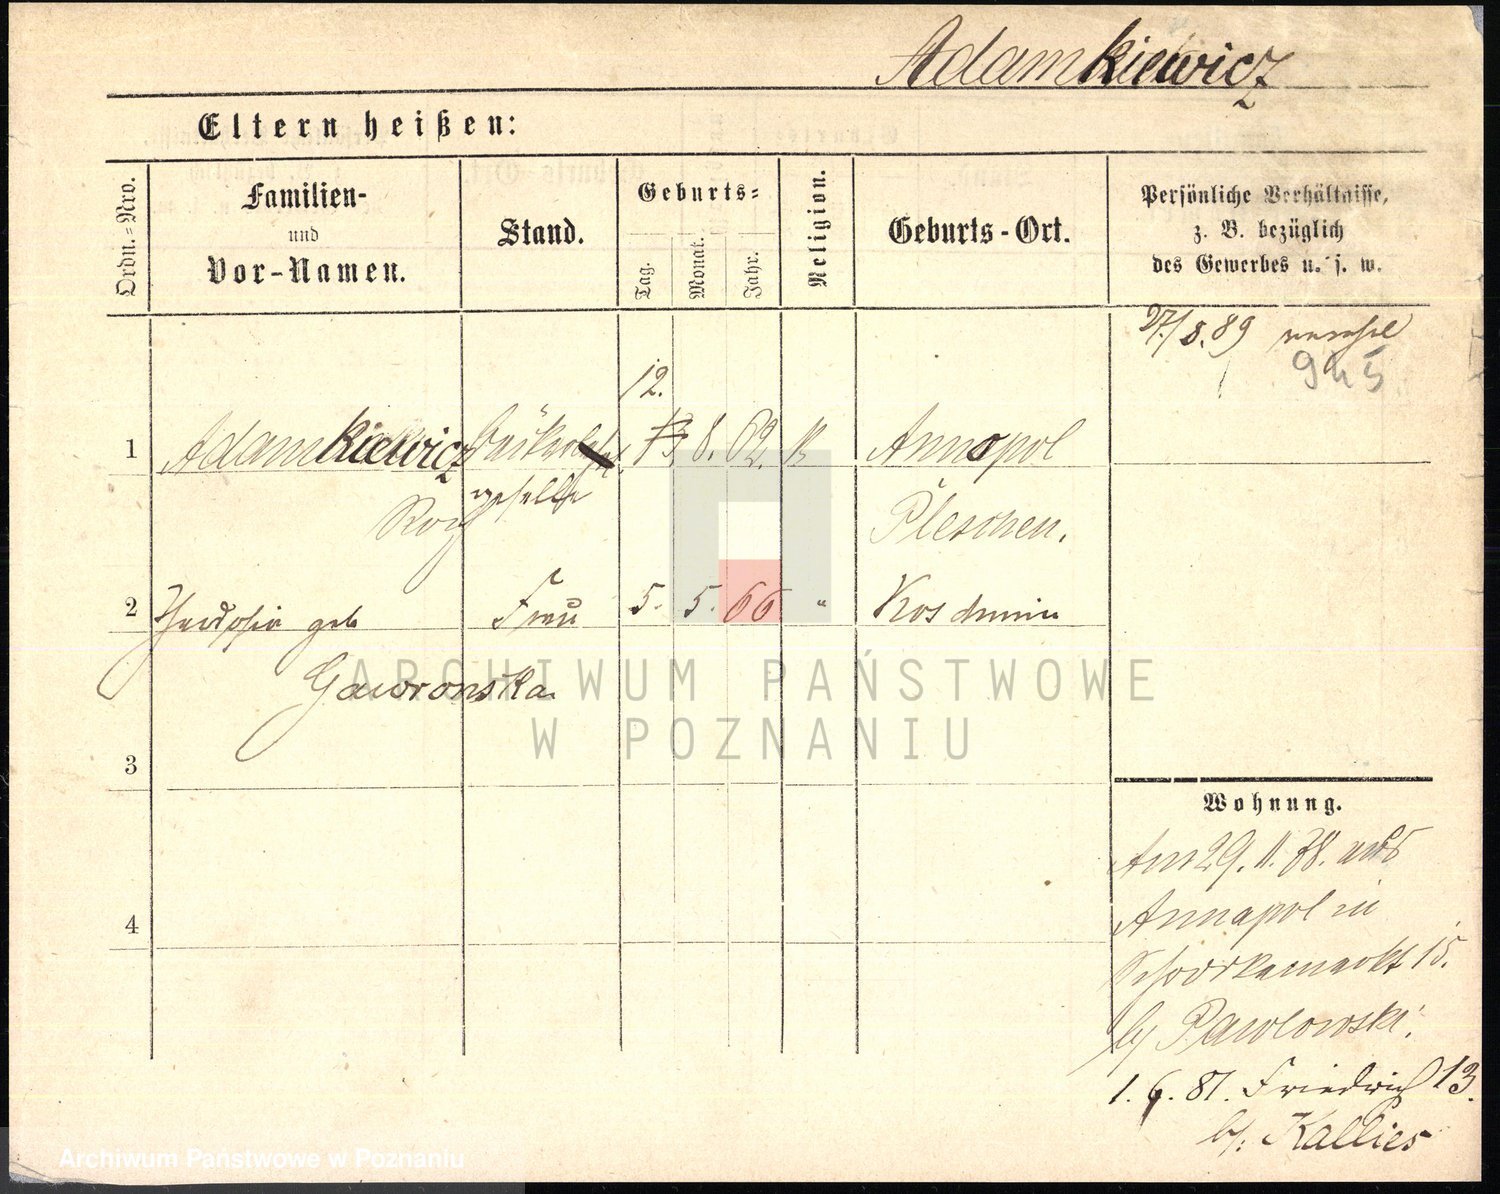 Adamkiewicz
Eltern heißen:
Ordn.-Nro.
Familien-
und
Vor-Namen.
Stand.
Geburts-
Tag.
Monat.
Jahr.
Religion.
Geburts-Ort.
Persönliche Verhältnisse,
z. B. bezüglich
des Gewerbes u. s. w.
27/8.89
945
12.
1 Adamkiewicz 13. 8. 62. K Annopol
geselle
Roch
Pleschen.
2 geb Frau 5. 5. 66 " Koschmin
Gaworonska
3
Wohnung.
Am 29. 11. 78. aus
4
Annapol in
15.
by Pawlowski.
1. 6. 81. Friedrich 13.
by. Kallies
ARCHIWUM PAŃSTWOWE
W POZNANIU
Archiwum Państwowe w Poznaniu